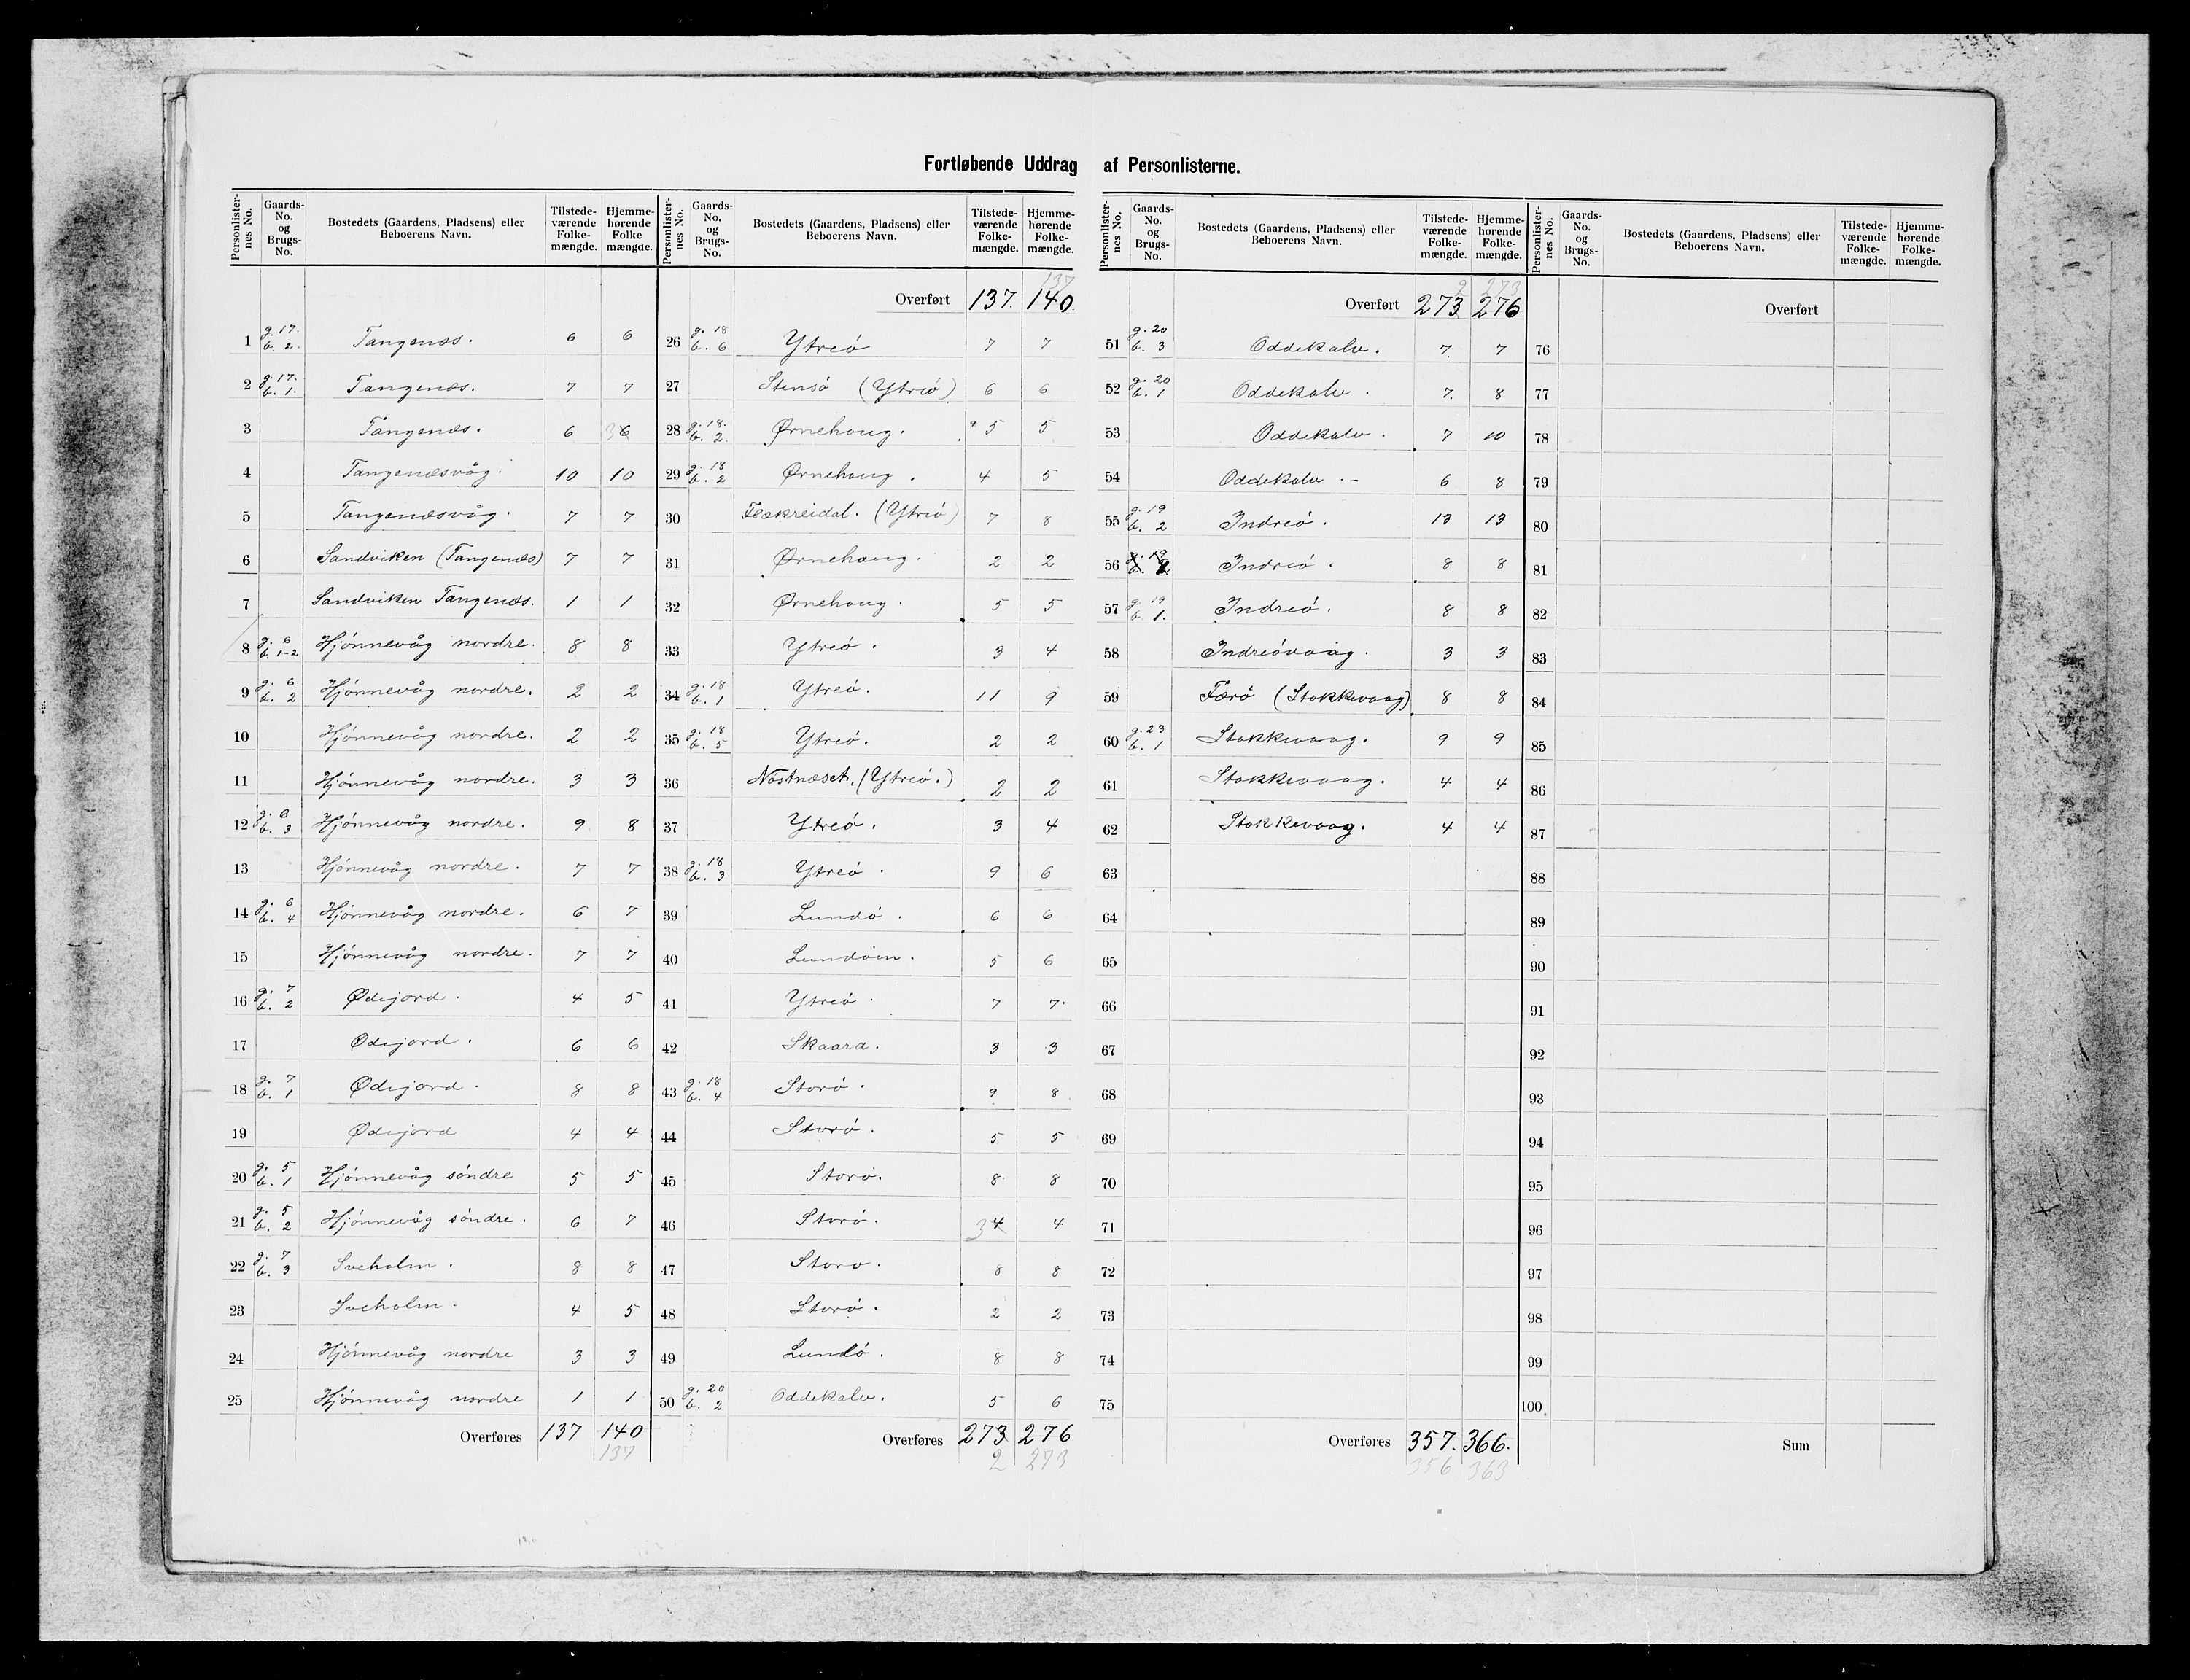 Fortløbende Uddrag af Personlisterne.
Personlister-nes No. Gaards-No. og Brugs-No. Bostedets (Gaardens, Pladsens) eller Beboerens Navn. Tilstede-værende Folke-mængde. Hjemme-hørende Folke mængde.
1 g. 17. b. 2. Tangenæs. 6 6
2 g. 17. b. 1. Tangenæs. 7 7
3 Tangenæs. 6 3 6
4 Tangenæsvåg. 10 10
5 Tangenæsvåg. 7 7
6 Sandviken (Tangenæs) 7 7
7 Sandviken Tangenæs. 1 1
8 g. 6 b. 1-2 Hjønnevåg nordre. 8 8
9 g. 6 b. 2 Hjønnevåg nordre. 2 2
10 Hjønnevåg nordre. 2 2
11 Hjønnevåg nordre. 3 3
12 g. 6 b. 3 Hjønnevåg nordre. 9 8
13 Hjønnevåg nordre. 7 7
14 g. 6 b. 4 Hjønnevåg nordre. 6 7
15 Hjønnevåg nordre. 7 7
16 g. 7 b. 2 Ødejord. 4 5
17 Ødejord. 6 6
18 g. 7 b. 1 Ødejord. 8 8
19 Ødejord 4 4
20 g. 5 b. 1 Hjønnevåg søndre 5 5
21 g. 5 b. 2 Hjønnevåg søndre. 6 7
22 g. 7 b. 3 Sveholm. 8 8
23 Sveholm. 4 5
24 Hjønnevåg nordre 3 3
25 Hjønnevåg nordre 1 1
Overføres 137 140
137
Personlister-nes No. Gaards-No. og Brugs-No. Bostedets (Gaardens, Pladsens) eller Beboerens Navn. Tilstede-værende Folke-mængde. Hjemme-hørende Folke-mængde.
137
Overført 137. 140.
26 g. 18 b. 6 Ytreø 7 7
27 Stensø (Ytreø) 6 6
28 g. 18. b. 2. Ørnehoug. 5 5
29 g. 18 b. 2 Ørnehoug. 4 5
30 Flækreidal. (Ytreø) 7 8
31 Ørnehoug. 2 2
32 Ørnehoug. 5 5
33 Ytreø. 3 4
34 g. 18 b. 1 Ytreø. 11 9
35 g. 18 b. 5 Ytreø. 2 2
36 Nøstnæset. (Ytreø.) 2 2
37 Ytreø. 3 4
38 g. 18 b. 3 Ytreø. 9 6
39 Lundø. 6 6
40 Lundøen. 5 6
41 Ytreø. 7 7.
42 Skaara. 3 3
43 g. 18 b. 4 Storø. 9 8
44 Storø. 5 5
45 Storø. 8 8
46 Storø. 3 4 4
47 Storø. 8 8
48 Storø. 2 2
49 Lundø. 8 8
50 g. 20 b. 2 Oddekalv. 5 6
Overføres 273 276
2 273
Personlister-nes No. Gaards-No. og Brugs-No. Bostedets (Gaardens, Pladsens) eller Beboerens Navn. Tilstede-værende Folke-mængde. Hjemme-hørende Folke-mængde.
2 273
Overført 273 276
51 g. 20 b. 3 Oddekalv. 7. 7
52 g. 20 b. 1 Oddekalv. 7. 8
53 Oddekalv. 7 10
54 Oddekalv. - 6 8
55 g. 19 b. 2 Indreø. 13 13
56 g. 19 b. 2 Indreø. 8 8
57 g. 19 b. 1. Indreø. 8 8
58 Indreøvaag. 3 3
59 Færø (Stokkevaag) 8 8
60 g. 23 b. 1 Stokkevaag. 9 9
61 Stokkevaag. 4 4
62 Stokkevaag. 4 4
63
64
65
66
67
68
69
70
71
72
73
74
75
Overføres 357. 366.
356 363
Personlister-nes No. Gaards-No. og Brugs-No. Bostedets (Gaardens, Pladsens) eller Beboerens Navn. Tilstede-værende Folke-mængde. Hjemme-hørende Folke-mængde.
Overført
76
77
78
79
80
81
82
83
84
85
86
87
88
89
90
91
92
93
94
95
96
97
98
99
100
Sum